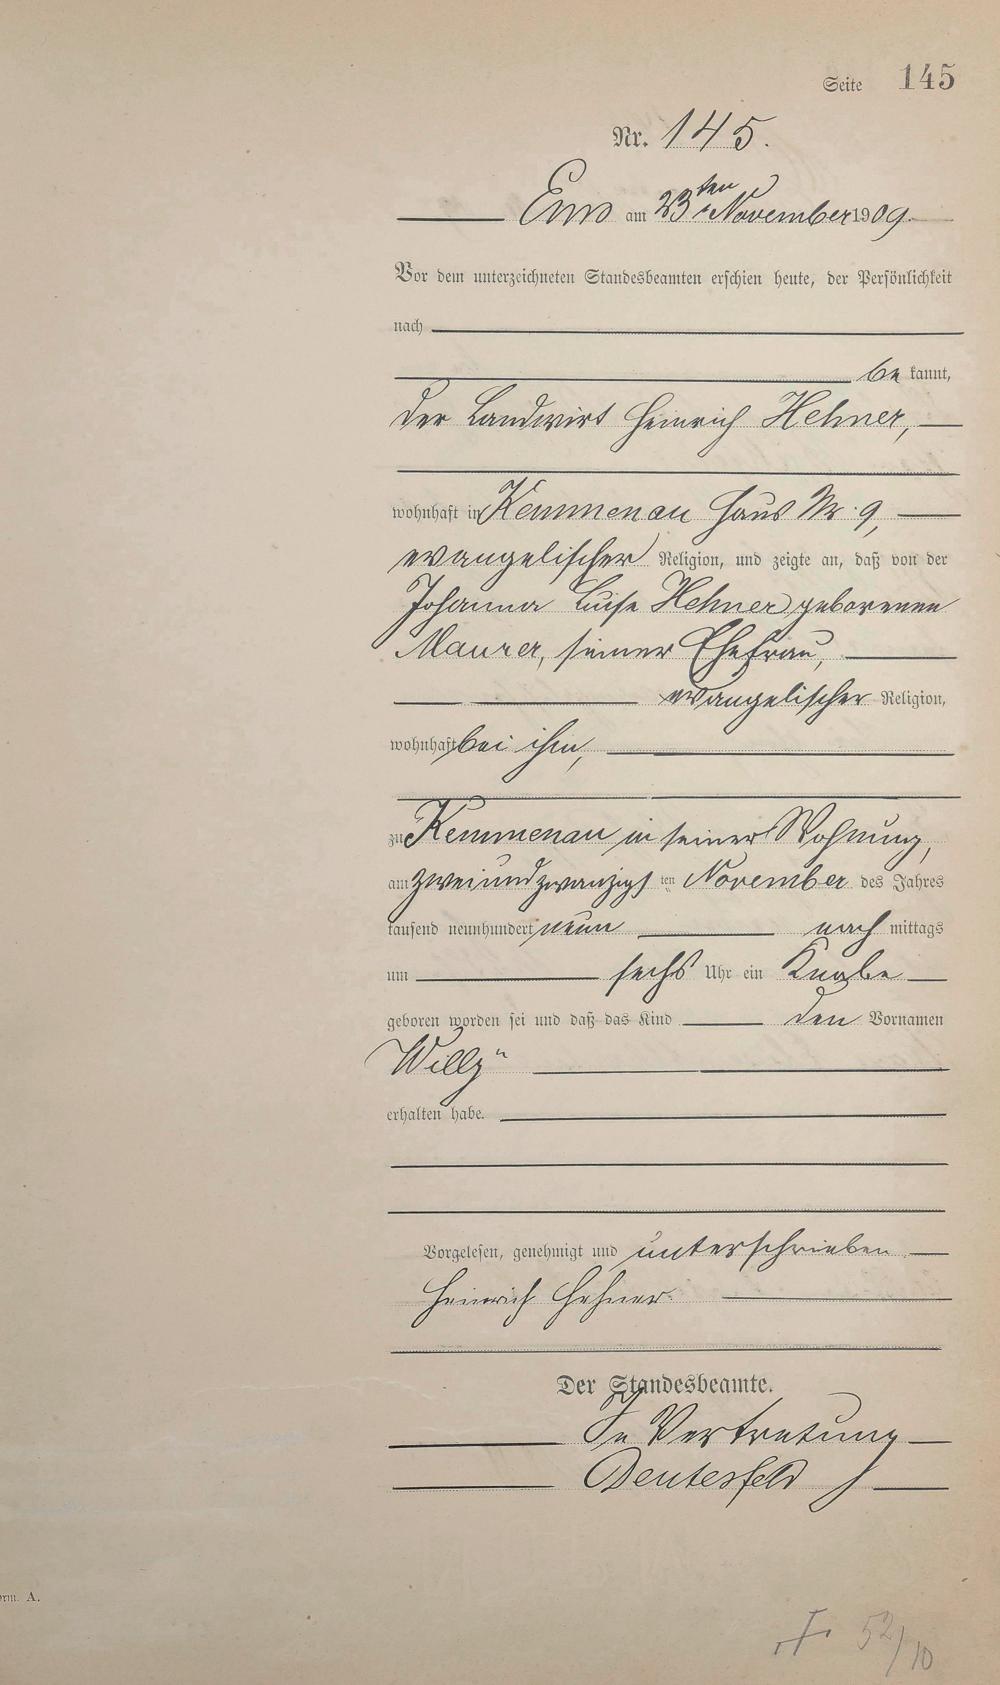 Seite 145
Nr. 145.
Ems am 23ten November 1909.
Vor dem unterzeichneten Standesbeamten erschien heute, der Persönlichkeit
nach
be kannt,
der Landwirt Heinrich Hehner,
wohnhaft in Kemmenau Haus Nr. 9,
evangelischer Religion, und zeigte an, daß von der
Johanna Luise Hehner geborenen
Maurer, seiner Ehefrau,
evangelischer Religion,
wohnhaft bei ihm,
zu Kemmenau in seiner Wohnung,
am zweiundzwanzigsten November des Jahres
tausend neunhundert neun nach mittags
um sechs Uhr ein Knabe
geboren worden sei und daß das Kind den Vornamen
Willy"
erhalten habe.
Vorgelesen, genehmigt und unterschrieben
Heinrich Hehner.
Der Standesbeamte.
In Vertretung
orm. A.
52/10